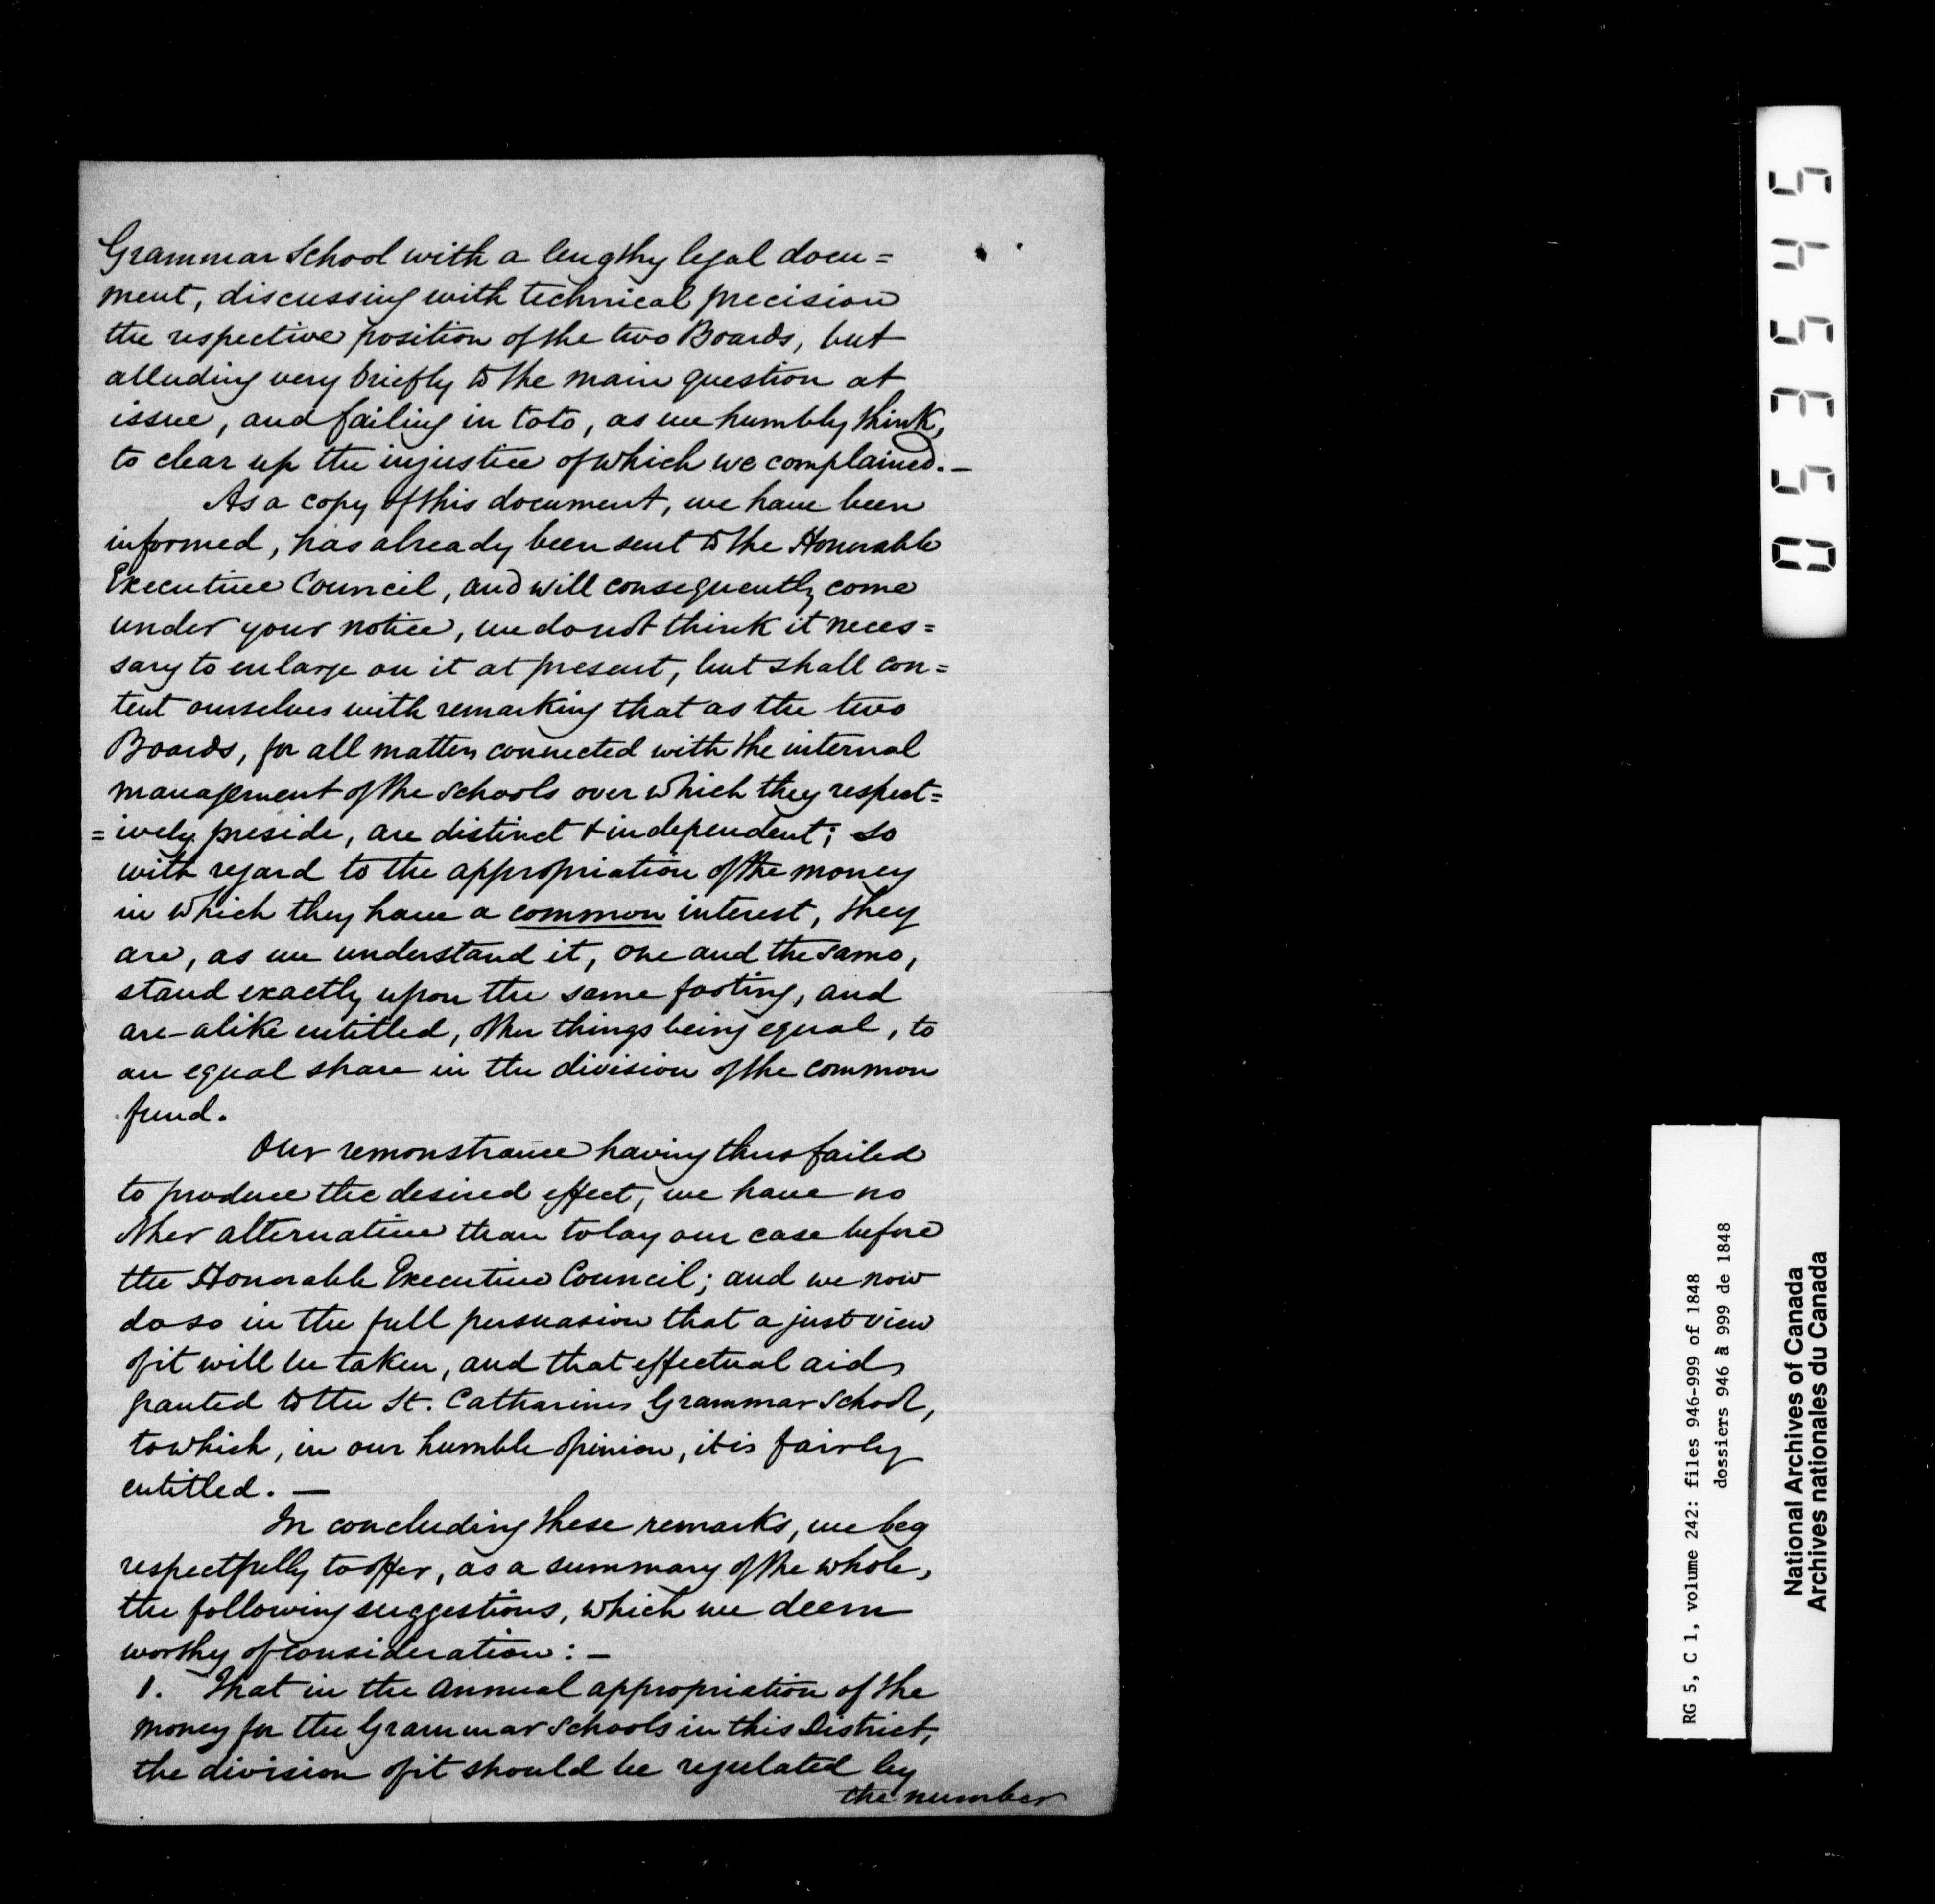 Grammar School with a lengthy legal docu=
ment, discussing with technical precision
the respective position of the two Boards, but
alluding very briefly to the main question at
issue, and failing in toto, as we humbly think,
to clear up the injustice of which we complained. —
As a copy of this document, we have been
informed, has already been sent to the Honorable
Executive Council, and will consequently come
under your notice, we do not think it neces=
sary to enlarge on it at present, but shall con=
tent ourselves with remarking that as the two
Boards, for all matters connected with the internal
management of the Schools over which they respect=
=ively preside, are distinct & independent; so
with regard to the appropriation of the money
in which they have a common interest, they
are, as we understand it, one and the same,
stand exactly upon the same footing, and
are alike entitled, other things being equal, to
an equal share in the division of the common
fund.
Our remonstrance having thus failed
to produce the desired effect, we have no
other alternative than to lay our case before
the Honorable Executive Council; and we now
do so in the full persuasion that a just view
of it will be taken, and that effectual aid
granted to the St. Catharines Grammar School,
to which, in our humble opinion, it is fairly
entitled. —
In concluding these remarks, we beg
respectfully to offer, as a summary of the whole,
the following suggestions, which we deem
worthy of consideration: —
1. That in the Annual appropriation of the
money for the Grammar Schools in this District,
the division of it should be regulated by
the number
053545
RG 5, C 1, volume 242: files 946-999 of 1848
dossiers 946 à 999 de 1848
National Archives of Canada
Archives nationales du Canada